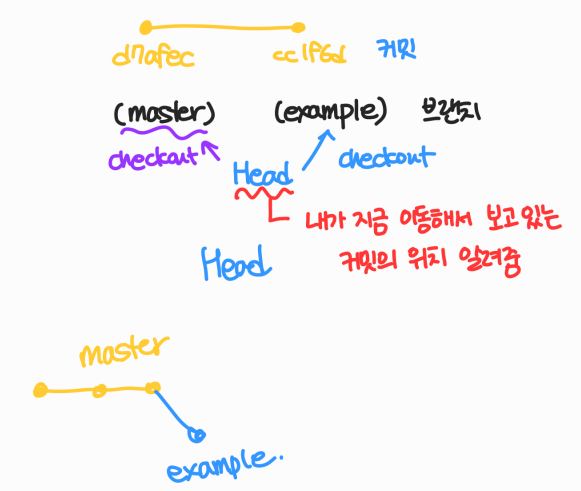 d7afec cc1f6d 커밋
(master) (example) 브랜치
checkout checkout
Head
내가 지금 이동해서 보고 있는
커밋의 위치 알려줌
Head
master
example.